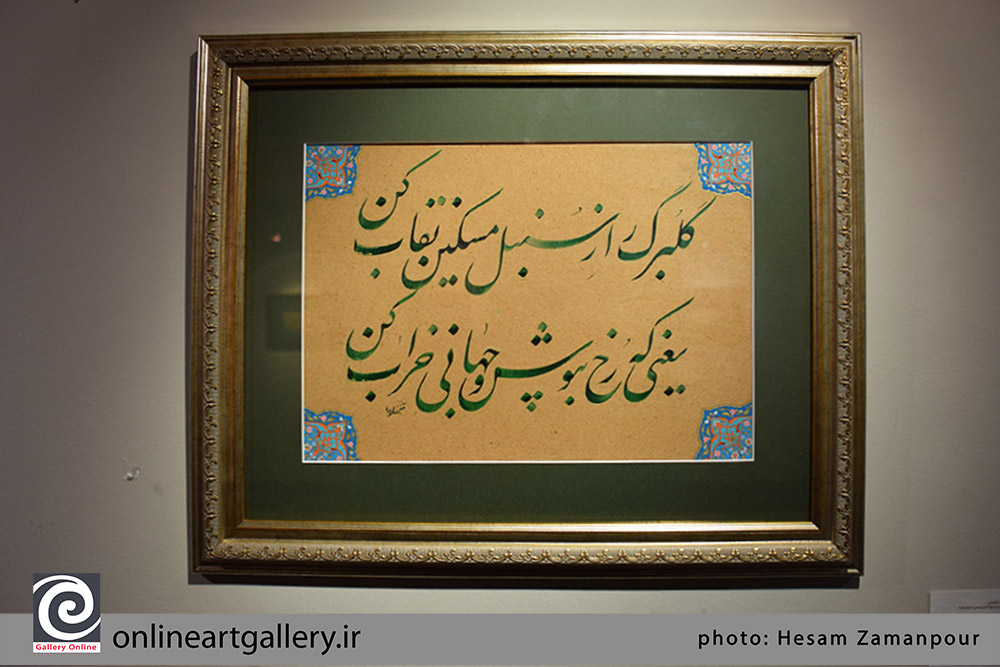 گلبرگ را ز سنبل مشکین نقاب کن
یعنی که رخ بپوش و جهانی خراب کن
Gallery Online
onlineartgallery.ir
photo: Hesam Zamanpour